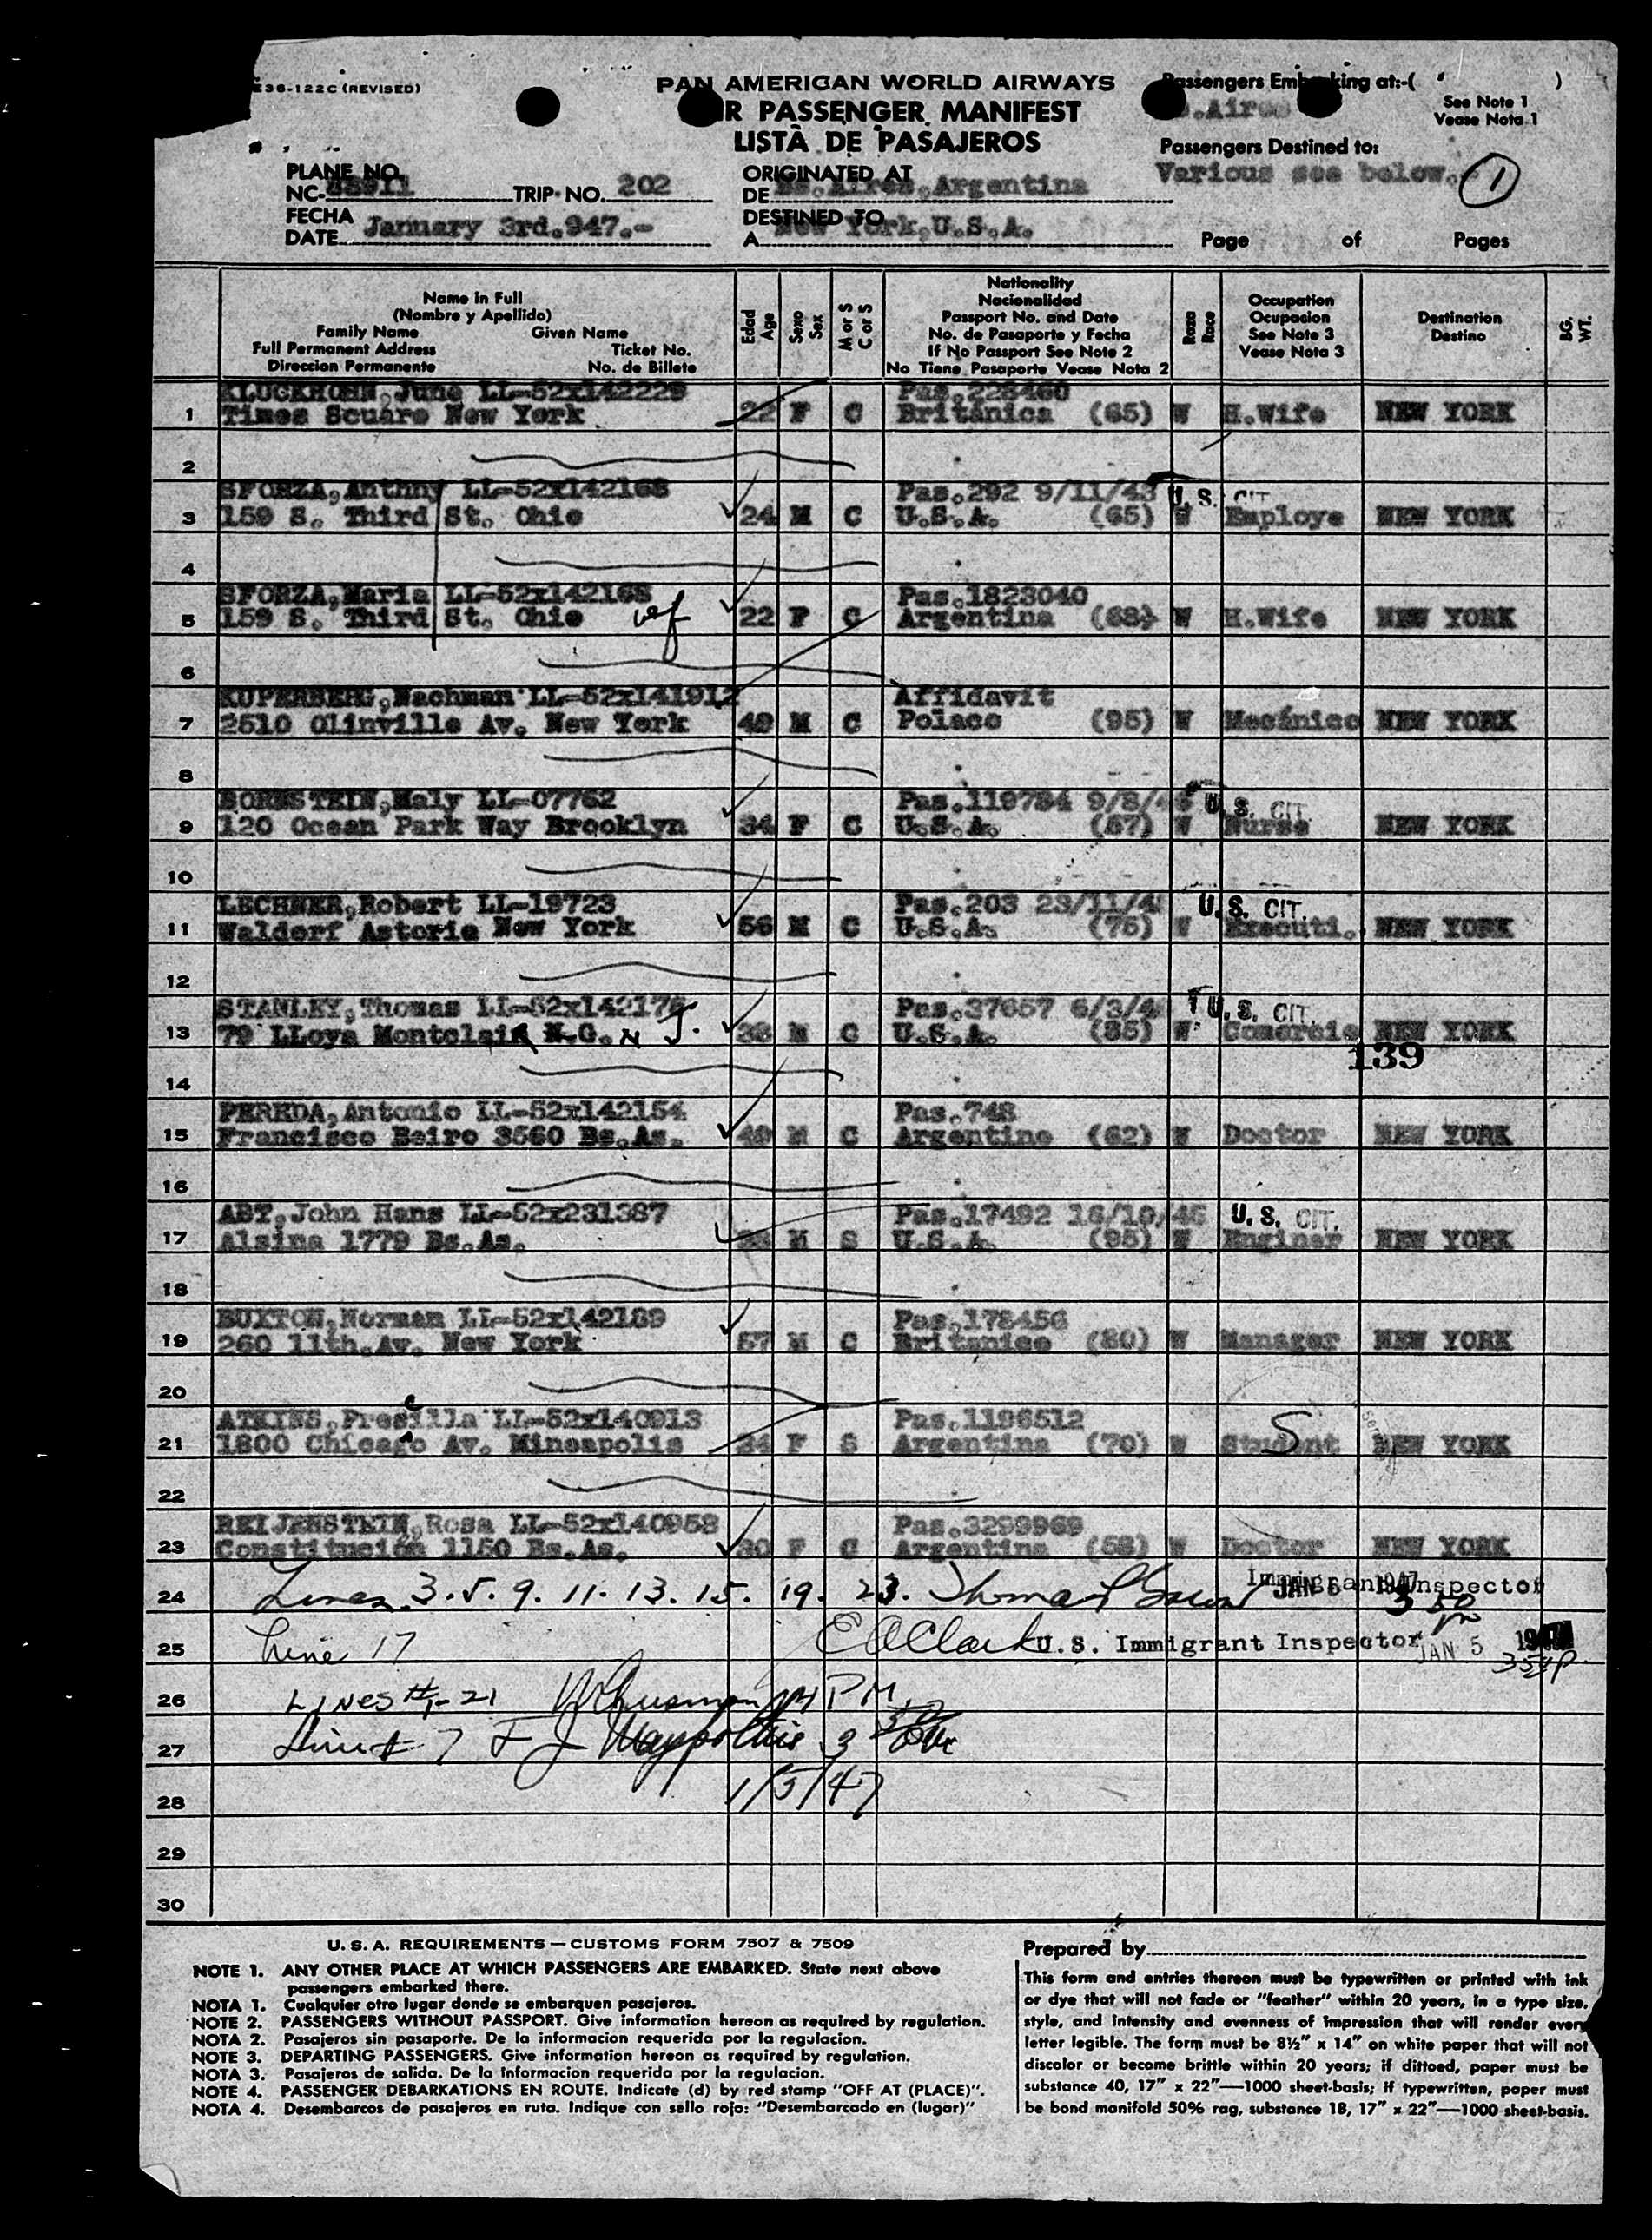 36-122C (REVISED)
PAN AMERICAN WORLD AIRWAYS
R PASSENGER MANIFEST
LISTA DE PASAJEROS
Passengers Embarking at:-( )
.Aires
See Note 1
Vease Nota 1
Passengers Destined to:
Various see below. 1
PLANE NO.
NC- TRIP NO. 202
FECHA
DATE January 3rd.947.-
ORIGINATED AT
DE Bs.Aires,Argentina
DESTINED TO
A New York,U.S.A.
Page of Pages
Name in Full
(Nombre y Apellido)
Family Name Given Name
Full Permanent Address Ticket No.
Direccion Permanente No. de Billete
Edad
Age
Sexo
Sex
M or S
C or S
Nationality
Nacionalidad
Passport No. and Date
No. de Pasaporte y Fecha
If No Passport See Note 2
No Tiene Pasaporte Vease Nota 2
Raza
Race
Occupation
Ocupacion
See Note 3
Vease Nota 3
Destination
Destino
BG.
WT.
KLUCKHOHN,June LL-52x142229 Pas.228460
1 Times Scuare New York 22 F C Británica (65) W H.Wife NEW YORK
2
SFORZA,Anthny LL-52x142168 Pas.292 9/11/43 U.S. CIT
3 159 S. Third St. Ohio 24 M C U.S.A. (65) W Employe NEW YORK
4
SFORZA,Maria LL-52x142168 Pas.1823040
5 159 S. Third St. Ohio 22 F C Argentina (68) W H.Wife NEW YORK
6
KUPERBERG,Nachman LL-52x141912 Affidavit
7 2510 Olinville Av. New York 49 M C Polaco (95) W Mecánico NEW YORK
8
BORNSTEIN,Maly LL-07762 Pas.119784 9/8/ U.S. CIT.
9 120 Ocean Park Way Brooklyn 34 F C U.S.A. (57) W Nurse NEW YORK
10
LECHNER,Robert LL-19723 Pas.203 23/11/4 U.S. CIT.
11 Waldorf Astoria New York 56 M C U.S.A. (75) W Executi. NEW YORK
12
STANLEY,Thomas LL-52x142176 Pas.37657 6/3/4 U.S. CIT.
13 79 LLoys Montclair N.G. N J. 38 M C U.S.A. (85) W Comercio NEW YORK
139
14
PEREDA,Antonio LL-52x142154 Pas.748
15 Francisco Beiro 3560 Bs.As. 49 M C Argentino (62) W Doctor NEW YORK
16
ABT,John Hans LL-52x231387 Pas.17492 16/10/46 U.S. CIT.
17 Alsina 1779 Bs.As. M S U.S.A. (95) W Enginer NEW YORK
18
BUXTON,Norman LL-52x142189 Pas.178456
19 260 11th.Av. New York 57 M C Britanico (80) W Manager NEW YORK
20
ATKINS,Presilla LL-52x140913 Pas.1196512
21 1800 Chicago Av. Mineapolis 34 F S Argentina (70) W Student S NEW YORK
22
REIJENSTEIN,Rosa LL-52x140958 Pas.3299969
23 Constitución 1150 Bs.As. 30 F C Argentina (58) W Doctor NEW YORK
24 Lines 3.5.9.11.13.15.19.23. Immigrant Inspector JAN 5 1947
25 Line 17 E A Clark U.S. Immigrant Inspector JAN 5 1947
26 LINES #1-21 PM
27 Line # 7 F J 3
28 1/5/47
29
30
U.S.A. REQUIREMENTS — CUSTOMS FORM 7507 & 7509
NOTE 1. ANY OTHER PLACE AT WHICH PASSENGERS ARE EMBARKED. State next above
passengers embarked there.
NOTA 1. Cualquier otro lugar donde se embarquen pasajeros.
NOTE 2. PASSENGERS WITHOUT PASSPORT. Give information hereon as required by regulation.
NOTA 2. Pasajeros sin pasaporte. De la informacion requerida por la regulacion.
NOTE 3. DEPARTING PASSENGERS. Give information hereon as required by regulation.
NOTA 3. Pasajeros de salida. De la informacion requerida por la regulacion.
NOTE 4. PASSENGER DEBARKATIONS EN ROUTE. Indicate (d) by red stamp "OFF AT (PLACE)".
NOTA 4. Desembarcos de pasajeros en ruta. Indique con sello rojo: "Desembarcado en (lugar)"
Prepared by
This form and entries thereon must be typewritten or printed with ink
or dye that will not fade or "feather" within 20 years, in a type size,
style, and intensity and evenness of impression that will render every
letter legible. The form must be 8½" x 14" on white paper that will not
discolor or become brittle within 20 years; if dittoed, paper must be
substance 40, 17" x 22"—1000 sheet-basis; if typewritten, paper must
be bond manifold 50% rag, substance 18, 17" x 22"—1000 sheet-basis.